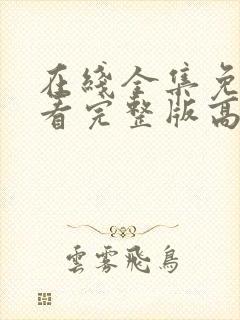 在綫全集免
看完整版高
雲霧飛鳥